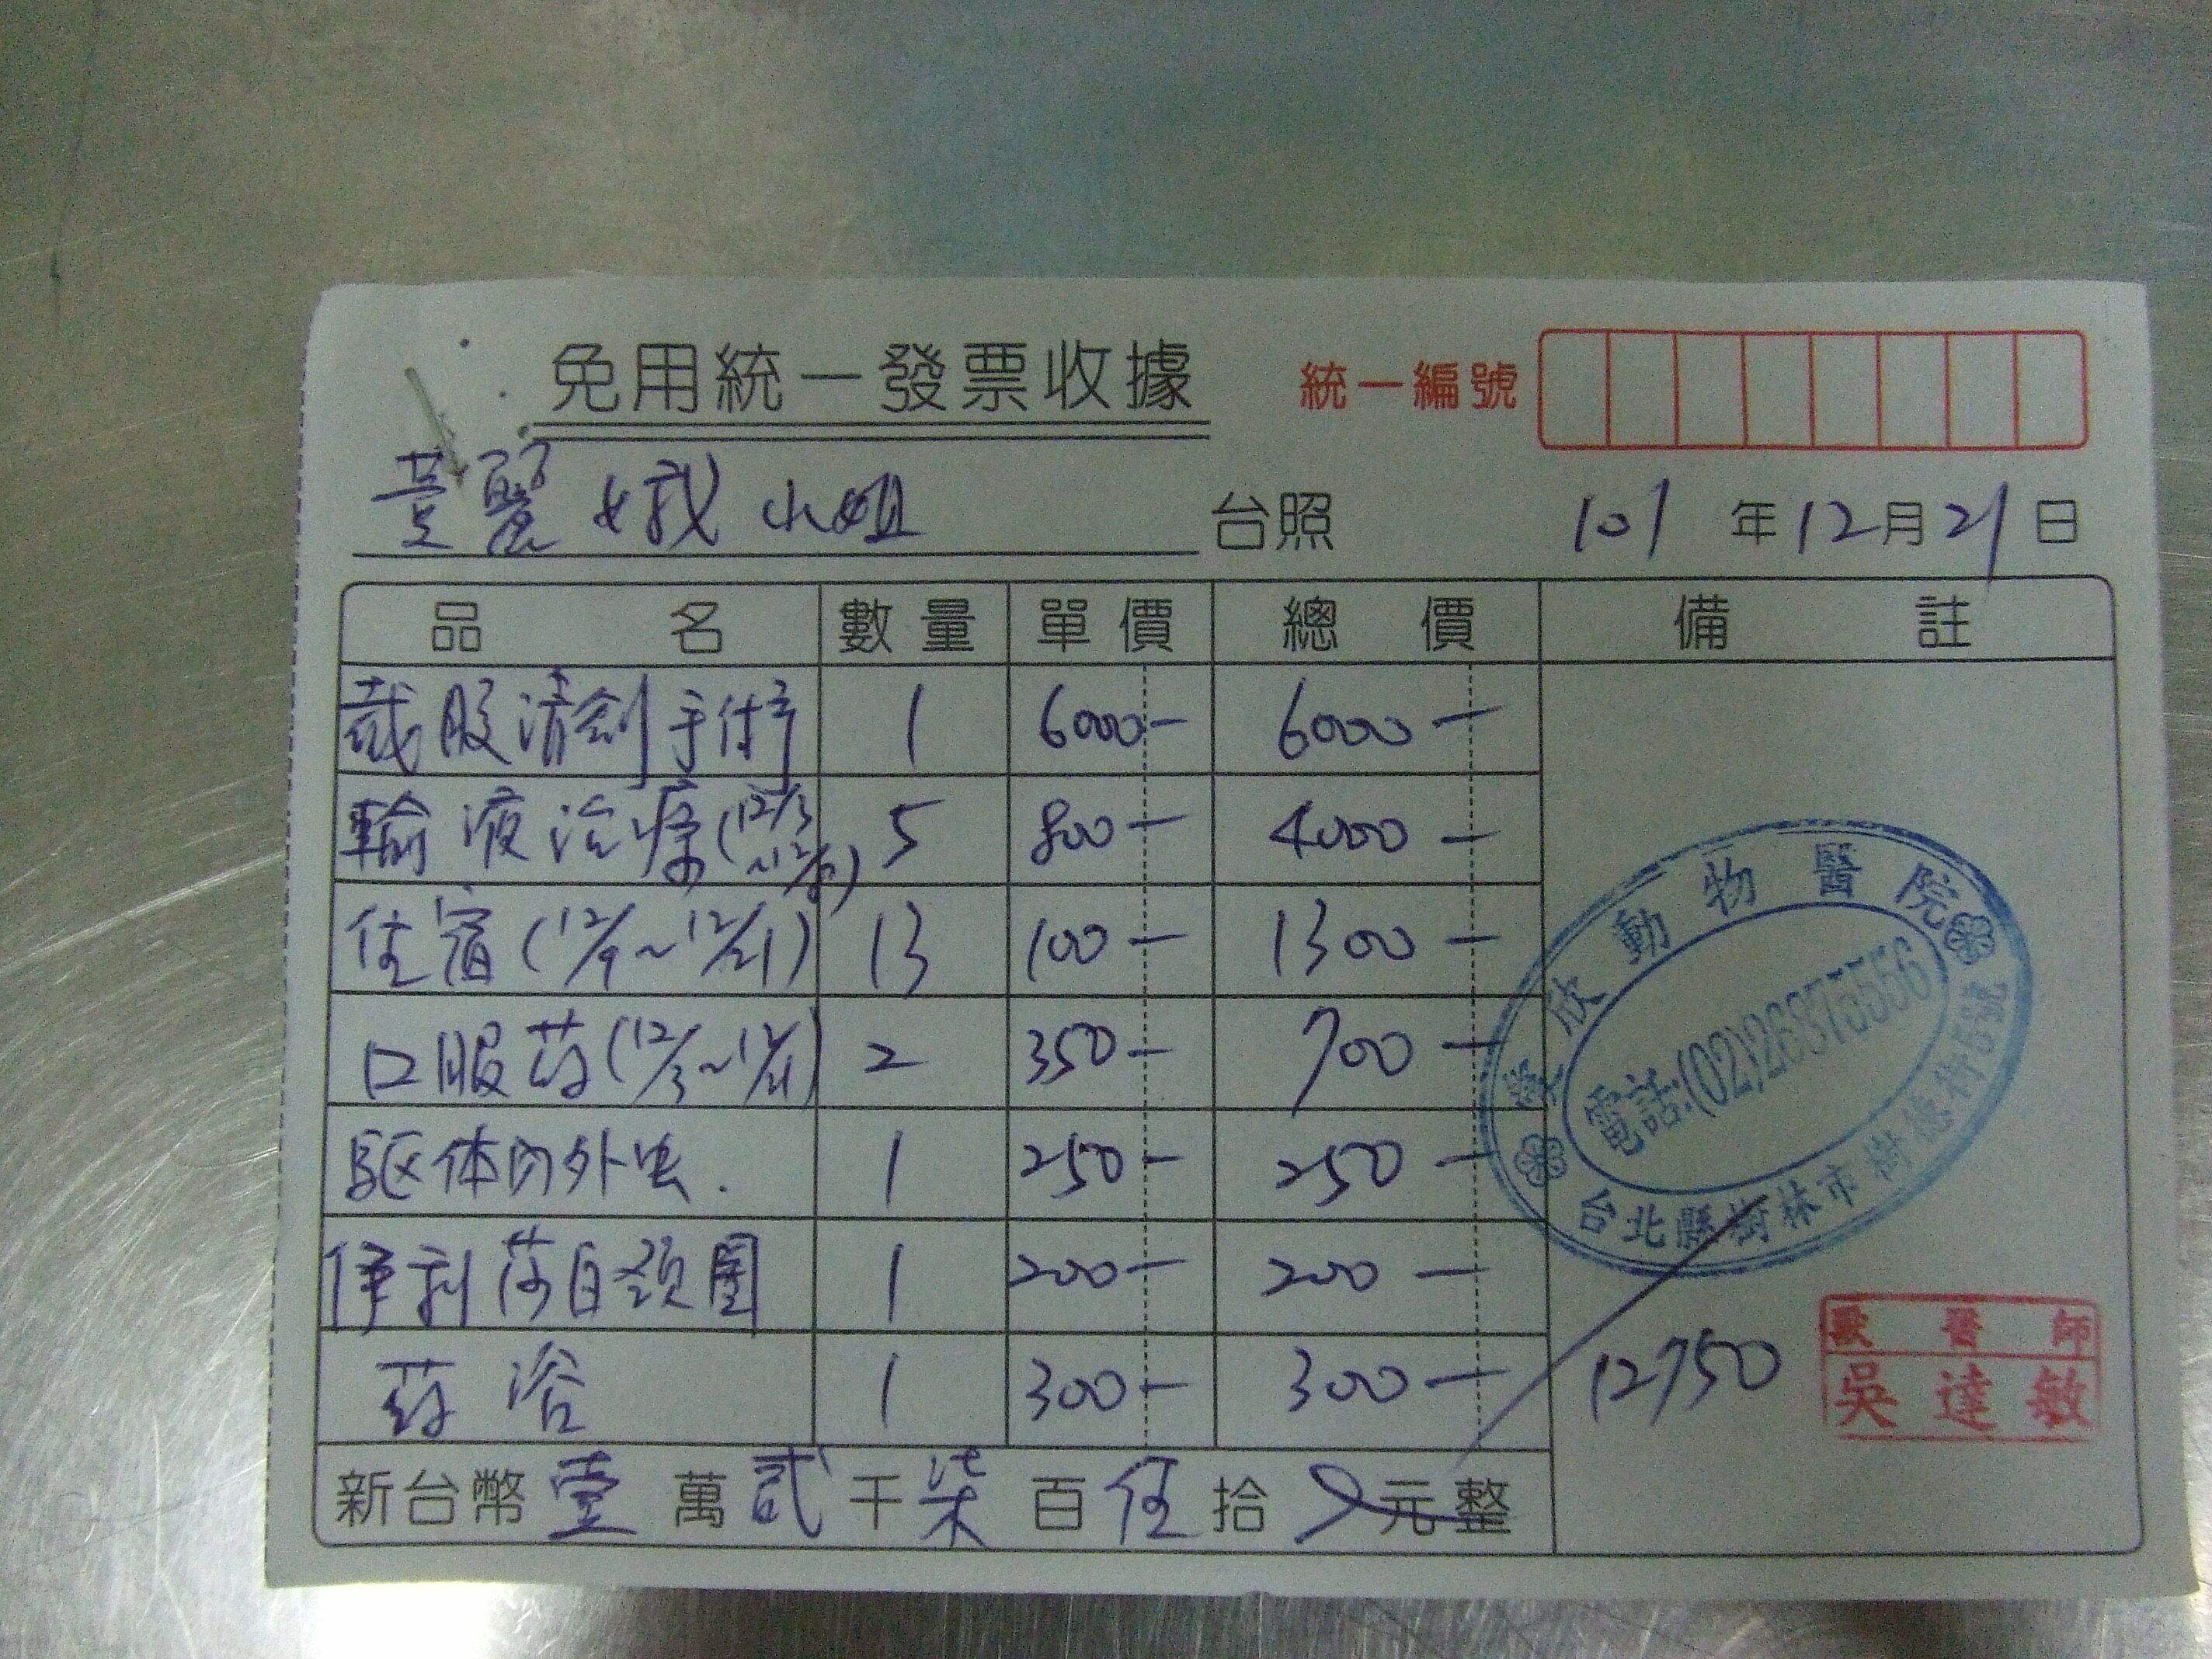 免用統一發票收據
統一編號
黃麗娥小姐 台照
101年12月21日
品名 數量 單價 總價 備註
截肢清創手術 1 6000- 6000-
輸液治療(12/3~12/) 5 800- 4000-
住宿(12/9~12/21) 13 100- 1300-
口服药(12/3~12/21) 2 350- 700-
驅体內外虫. 1 250- 250-
伊利莎白頸圈 1 200- 200-
药浴 1 300- 300-
新台幣壹萬貳千柒百伍拾元整
12750
欣動物醫院
電話:(02)26875556
台北縣樹林市樹德街5號
獸醫師
吳達敏